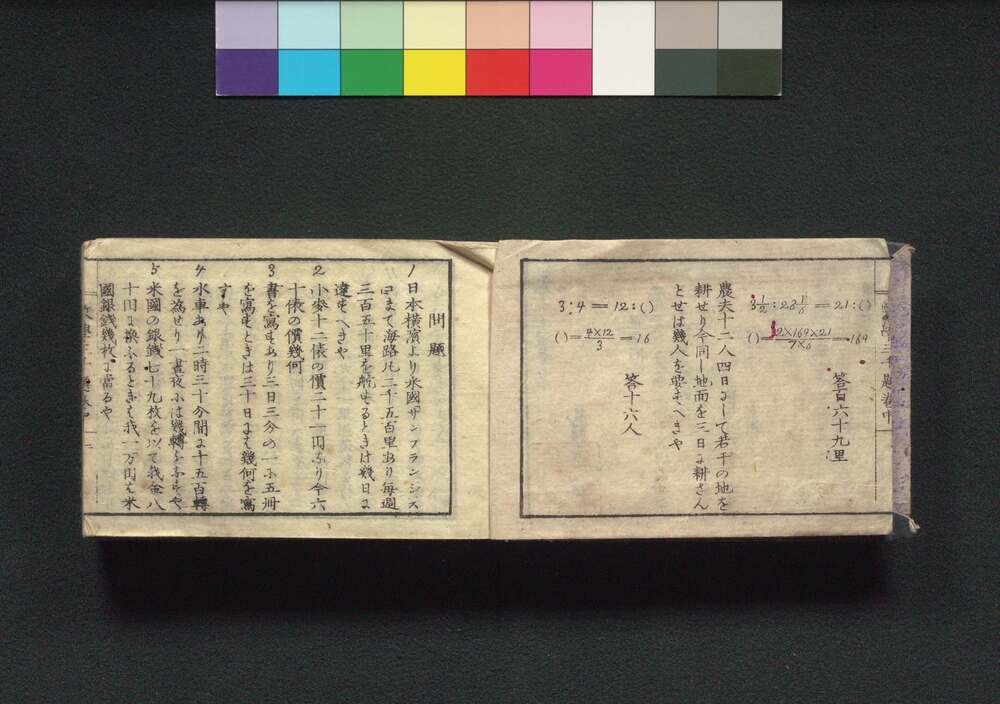 3½:28⅙=21:()
()=2×169×21/7×6=169
答百六十九里
農夫十二人四日にして若干の地を
耕せり今同し地面を三日に耕さん
とせは幾人を要すへきや
3:4=12:()
()=4×12/3=16
答十六人
問題
1 日本横濱より米國サンフランシス
コまて海路凡二千五百里あり毎週
三百五十里を航するときは幾日に
達すへきや
2 小麥十二俵の價二十一円なり今六
十俵の價幾何
3 書を寫すあり三日三分の一に五冊
を寫すときは三十日には幾何を寫
すや
4 水車あり二時三十分間に千五百轉
を為せり一晝夜には幾轉をなすや
5 米國の銀銭七十九枚を以て我金八
十円に換ふるときは我一万円は米
國銀銭幾枚に當るや